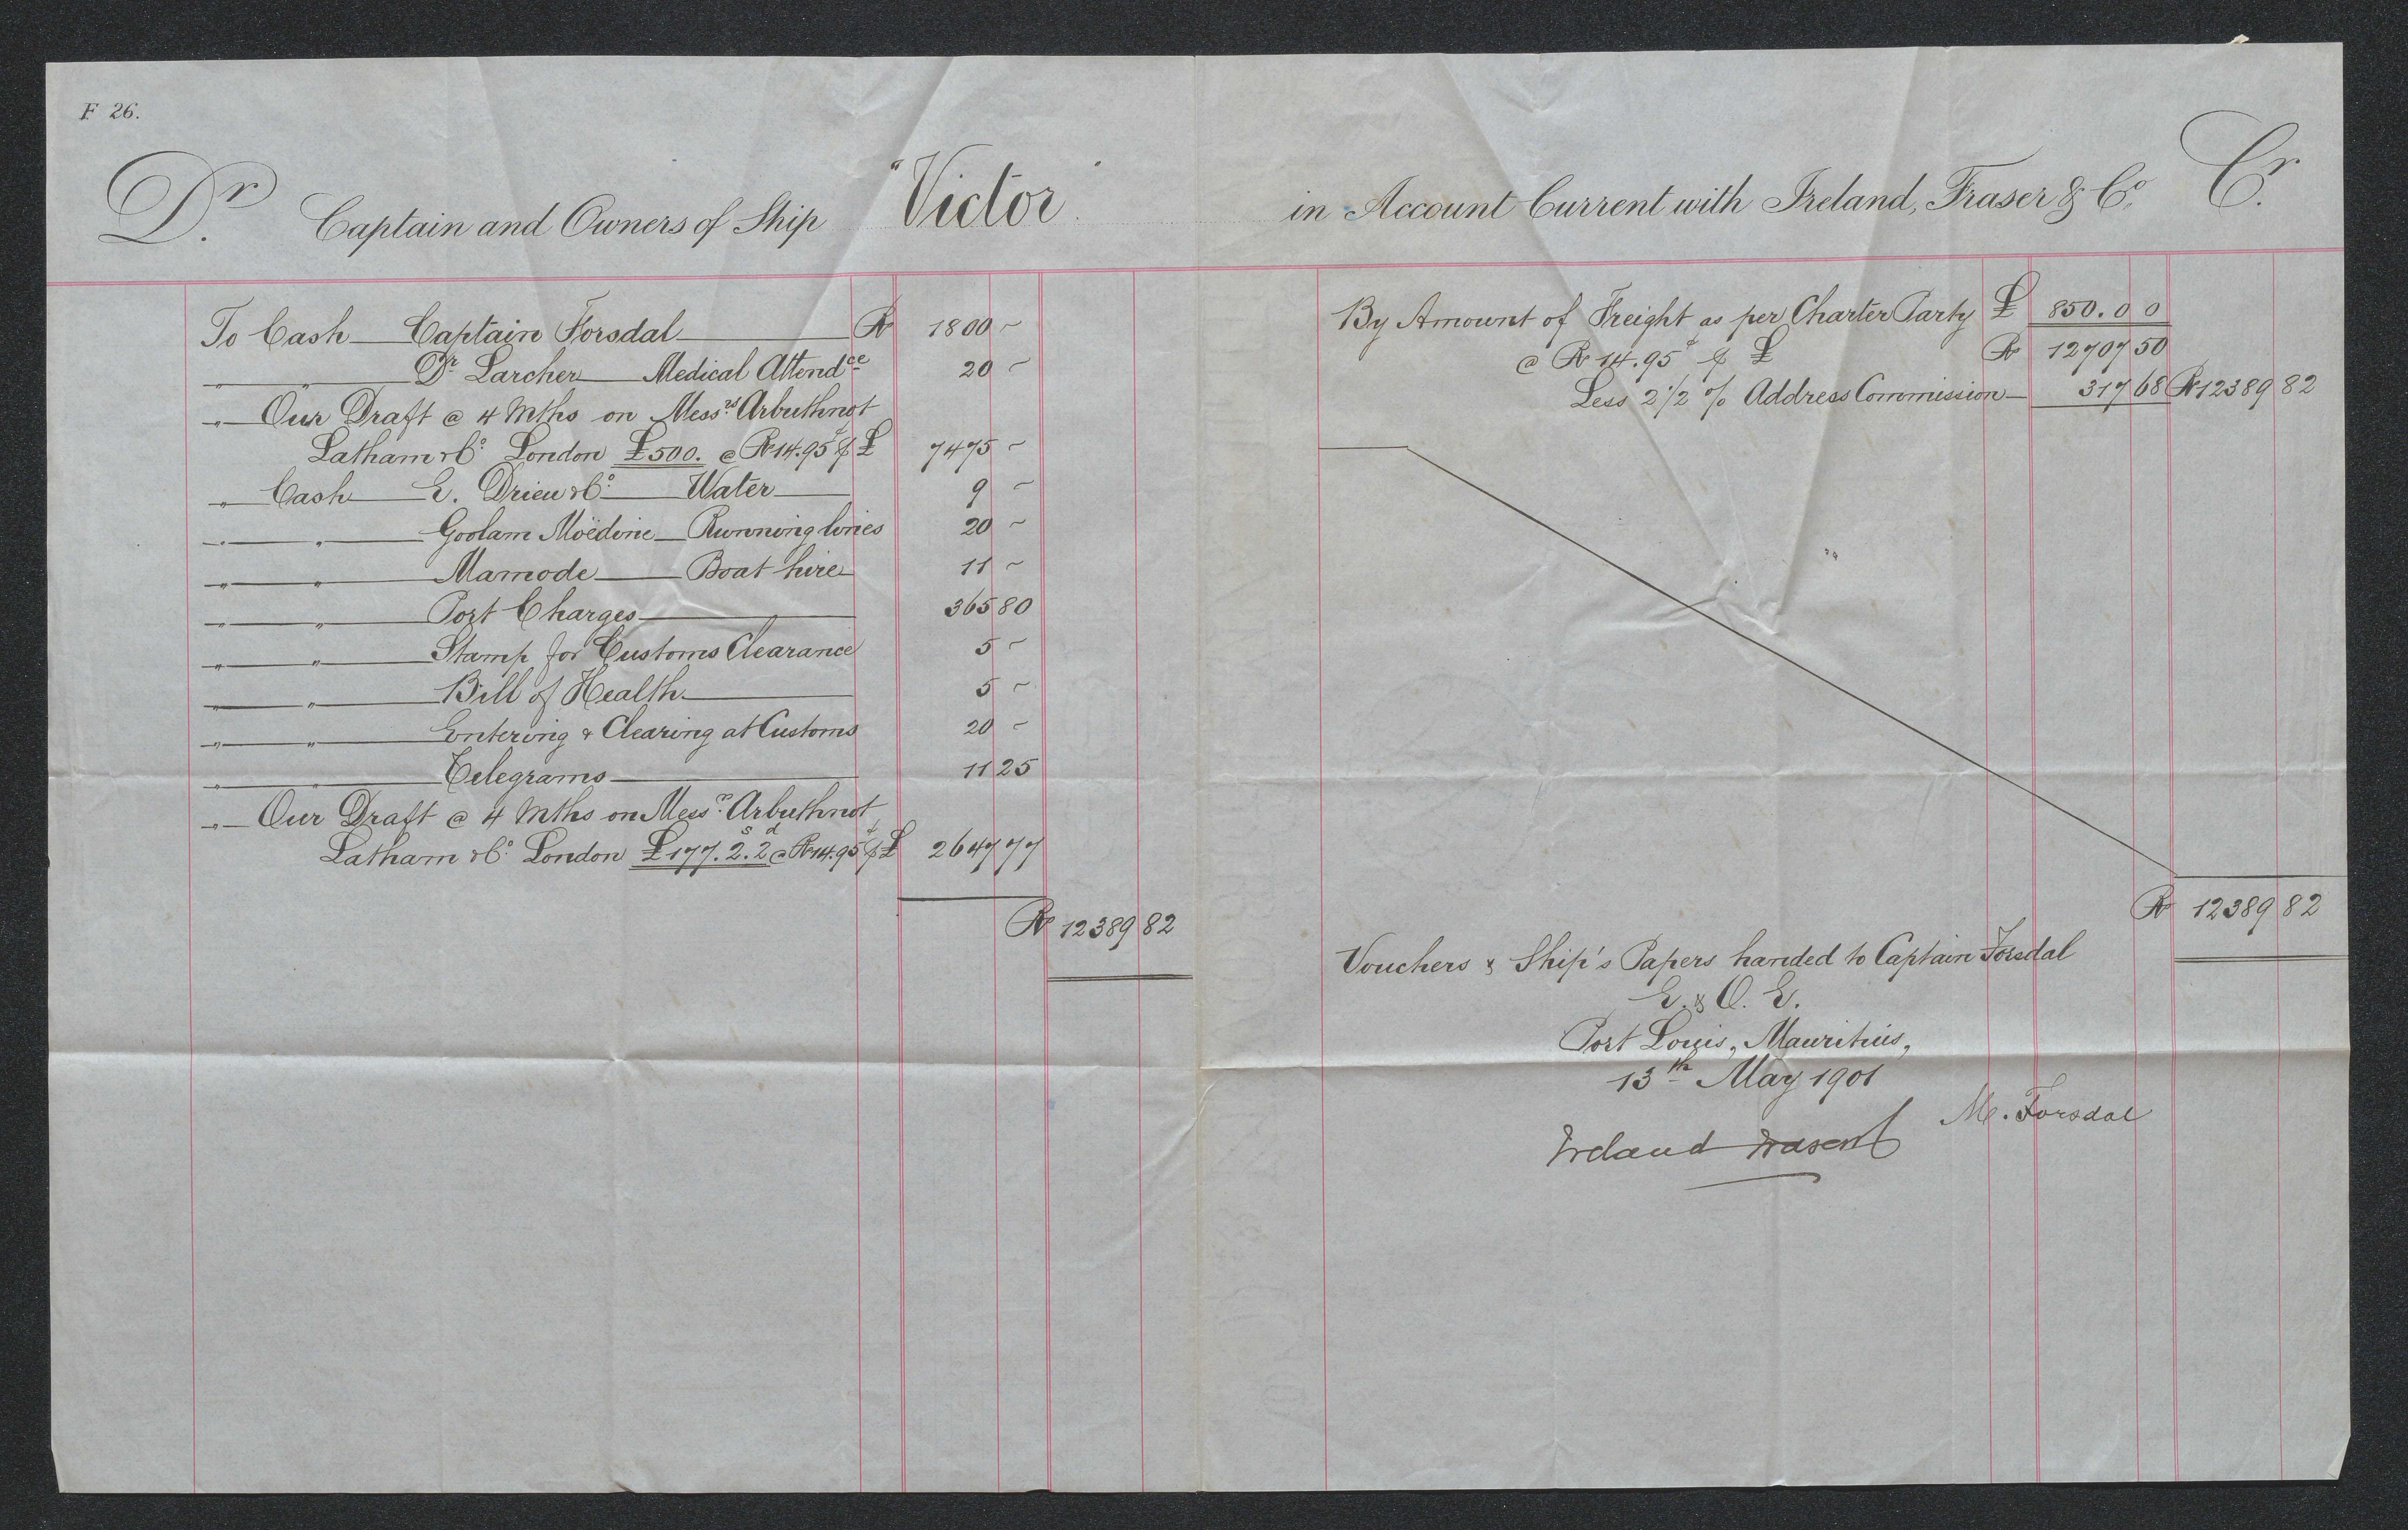 F 26.
Dr. Captain and Owners of Ship "Victor" in Account Current with Ireland, Fraser & Co. Cr.
To Cash Captain Forsdal R 1800 ~
" " Dr Larcher Medical Attendce 20 ~
" Our Draft @ 4 Mths on Messrs Arbuthnot
Latham & Co London £500. @ R 14.95c p £ 7475 ~
" Cash E. Drieu & Co Water 9 ~
" " Goolam Moëdine Running lines 20 ~
" " Mamode Boat hire 11 ~
" " Port Charges 365 80
" " Stamp for Customs Clearance 5 ~
" " Bill of Health 5 ~
" " Entering & Clearing at Customs 20 ~
" " Telegrams 11 25
" Our Draft @ 4 Mths on Messrs Arbuthnot
Latham & Co London £177. 2s. 2d @ R 14.95c p £ 2647 77
R 12389 82
By Amount of Freight as per Charter Party £ 850. 0 0
@ R 14.95c p £ R 12707 50
Less 2 1/2 % Address Commission 317 68 R 12389 82
R 12389 82
Vouchers & Ship's Papers handed to Captain Forsdal
E. & O. E.
Port Louis, Mauritius,
13th May 1901
M. Forsdal
Ireland Fraser & Co